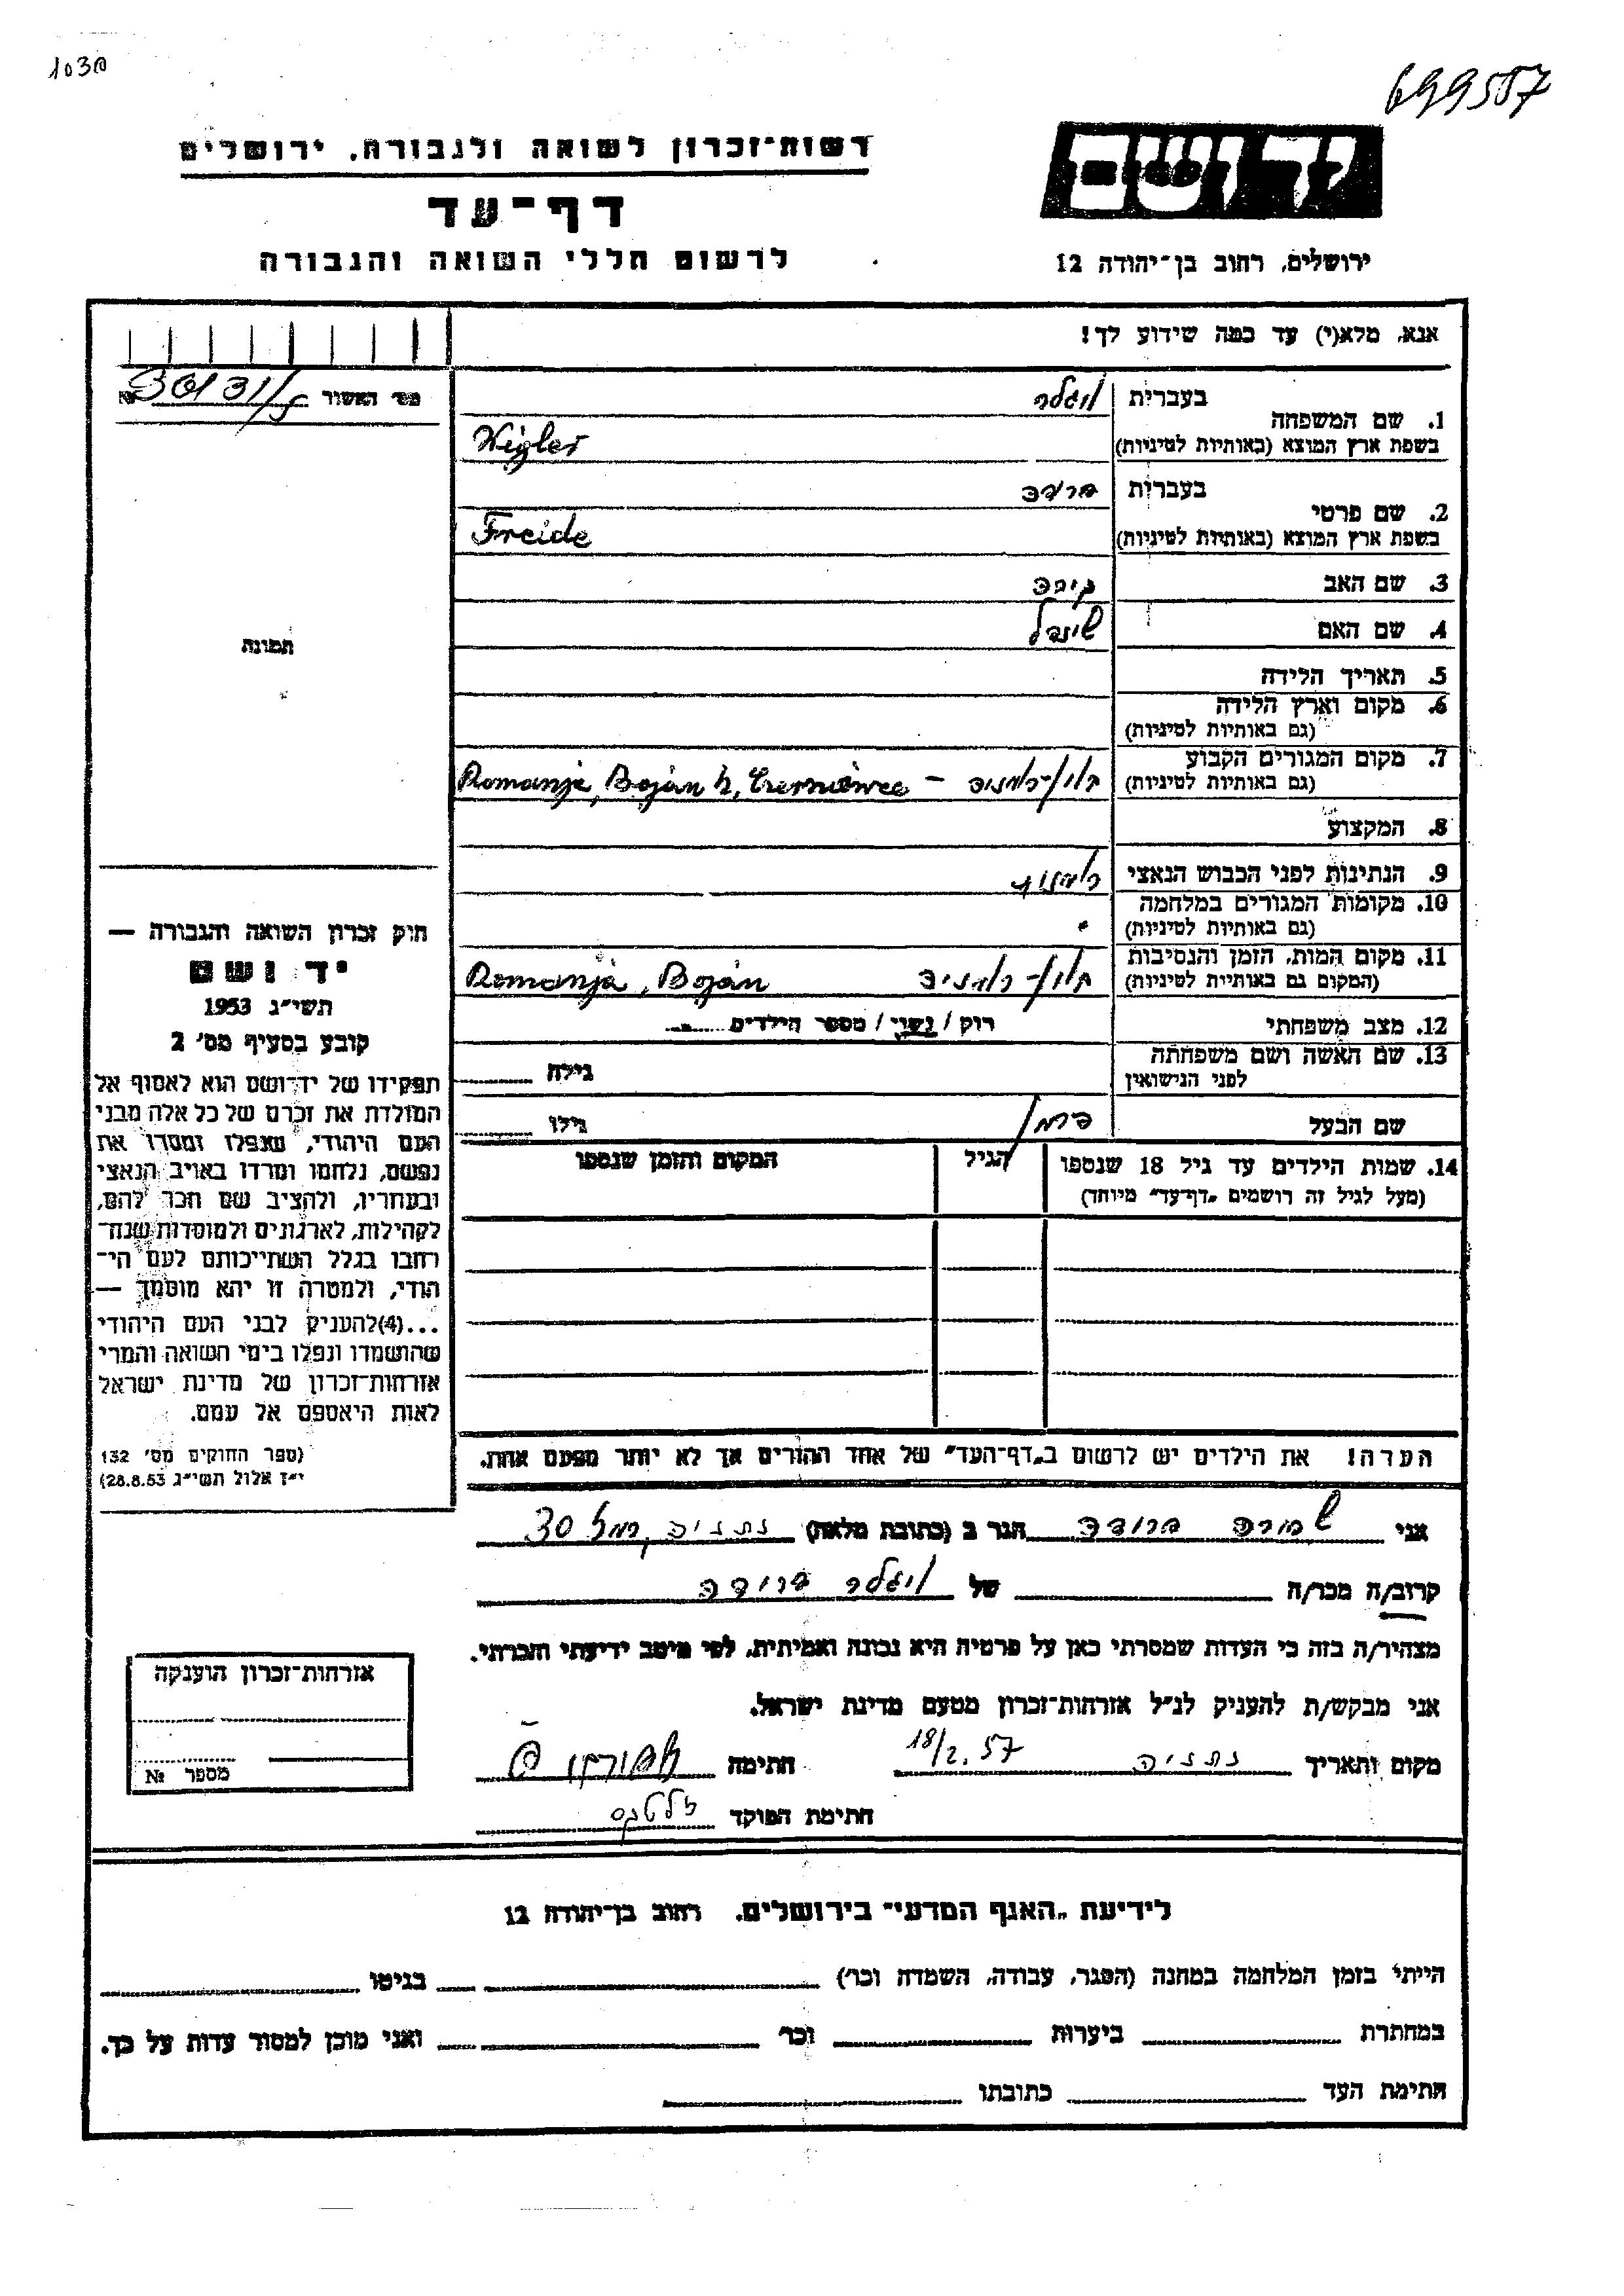 1030
699557
רשות־זכרון לשואה ולגבורה, ירושלים
דף־עד
לרשום חללי השואה והגבורה
יד ושם
ירושלים, רחוב בן־יהודה 12
אנא, מלא(י) עד כמה שידוע לך!
מס׳ האשור №
1. שם המשפחה
בעברית ויגלר
בשפת ארץ המוצא (באותיות לטיניות) Wigler
2. שם פרטי
בעברית פרידה
בשפת ארץ המוצא (באותיות לטיניות) Freide
3. שם האב
4. שם האם שינדל
5. תאריך הלידה
6. מקום וארץ הלידה
(גם באותיות לטיניות)
7. מקום המגורים הקבוע
(גם באותיות לטיניות) רומניה – Romanja, Boján k, Czerniowce
8. המקצוע
9. הנתינות לפני הכבוש הנאצי רומנית
10. מקומות המגורים במלחמה
(גם באותיות לטיניות)
11. מקום המות, הזמן והנסיבות
(המקום גם באותיות לטיניות) רומניה Romanja, Boján
12. מצב משפחתי רוק / נשוי / מספר הילדים
13. שם האשה ושם משפחתה
לפני הנישואין גילה
שם הבעל גילו
14. שמות הילדים עד גיל 18 שנספו
(מעל לגיל זה רושמים „דף־עד" מיוחד)
הגיל
המקום והזמן שנספו
הערה! את הילדים יש לרשום ב„דף־העד" של אחד ההורים אך לא יותר מפעם אחת.
תמונה
חוק זכרון השואה והגבורה —
יד ושם
תשי״ג 1953
קובע בסעיף מס׳ 2
תפקידו של יד־ושם הוא לאסוף אל
המולדת את זכרם של כל אלה מבני
העם היהודי, שנפלו ומסרו את
נפשם, נלחמו ומרדו באויב הנאצי
ובעוזריו, ולהציב שם וזכר להם,
לקהילות, לארגונים ולמוסדות שנח־
רבו בגלל השתייכותם לעם הי־
הודי, ולמטרה זו יהא מוסמך —
...(4)להעניק לבני העם היהודי
שהושמדו ונפלו בימי השואה והמרי
אזרחות־זכרון של מדינת ישראל
לאות היאספם אל עמם.
(ספר החוקים מס׳ 132
י״ז אלול תשי״ג 28.8.53)
אני פרידה הגר ב (כתובת מלאה) נתניה, 30
קרוב/ה מכר/ה של ויגלר פרידה
מצהיר/ה בזה כי העדות שמסרתי כאן על פרטיה היא נכונה ואמיתית, לפי מיטב ידיעתי והכרתי.
אני מבקש/ת להעניק לנ״ל אזרחות־זכרון מטעם מדינת ישראל.
מקום ותאריך נתניה 18/2.57 חתימה
חתימת הפוקד
אזרחות־זכרון הוענקה
מספר №
לידיעת „האגף המדעי" בירושלים, רחוב בן־יהודה 12
הייתי בזמן המלחמה במחנה (הסגר, עבודה, השמדה וכו׳) בגיטו
במחתרת ביערות וכו׳ ואני מוכן למסור עדות על כך.
חתימת העד כתובתו